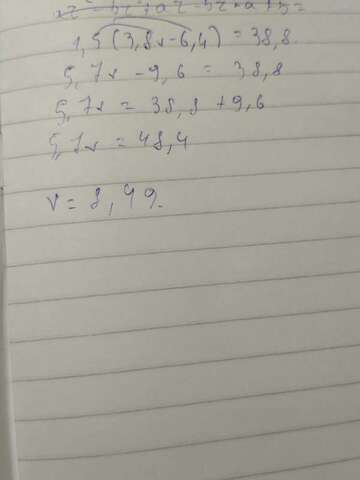 1,5(3,8x-6,4) = 38,8.
5,7x - 9,6 = 38,8
5,7x = 38,8 + 9,6
5,7x = 48,4
x = 8,49.